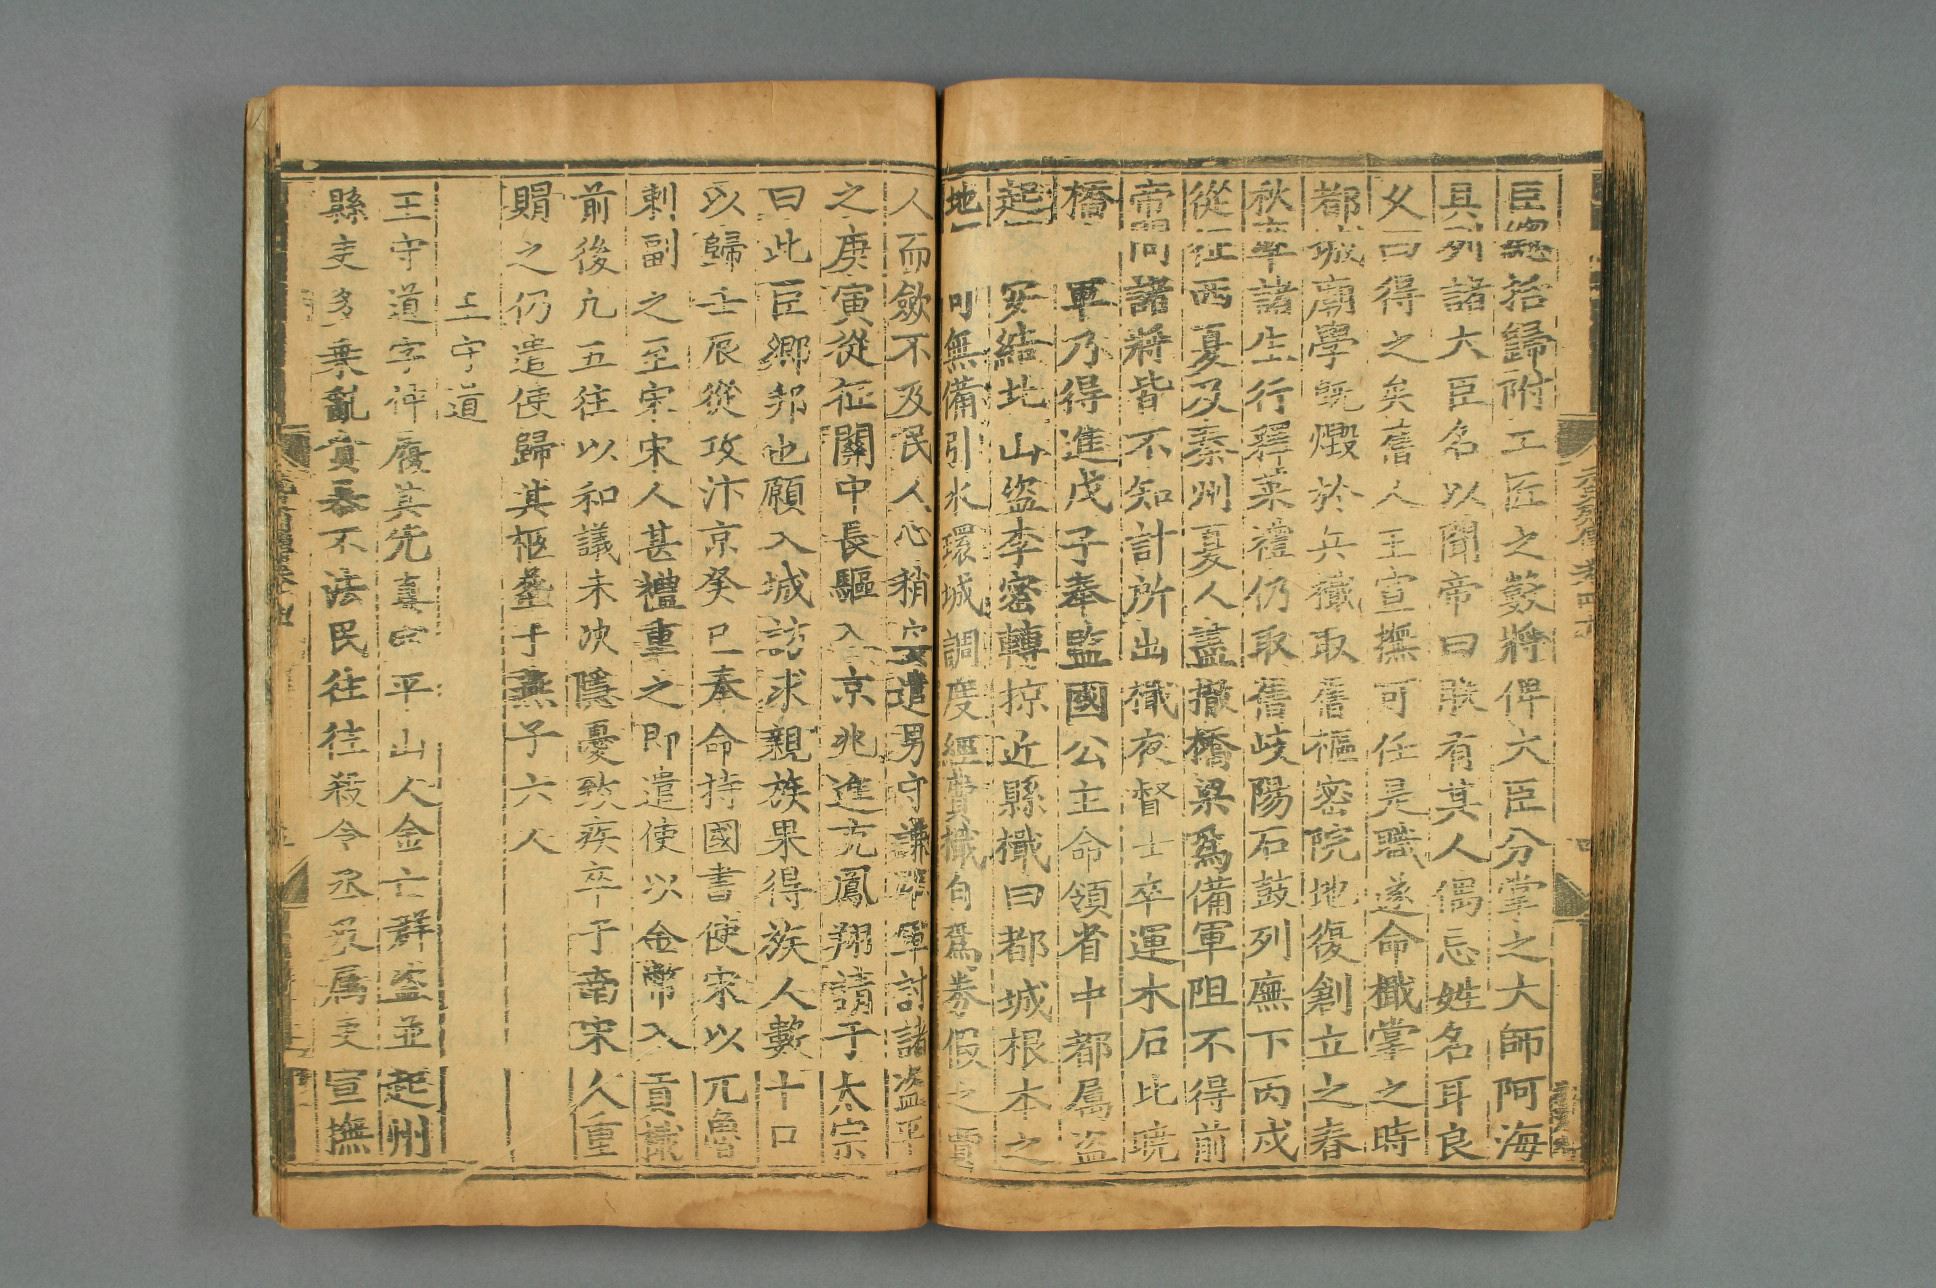 臣緫括歸附工匠之數將俾大臣分掌之大師阿海
具列諸大臣名以聞帝曰朕有其人偶忘姓名耳良
乆曰得之矣舊人王宣撫可任是職遂命檝掌之時
都城廟學旣燬於兵檝取舊樞密院地復創立之春
秋率諸生行釋菜禮仍取舊岐陽石鼓列廡下丙戍
從征西夏及秦州夏人盡撤橋梁爲備軍阻不得前
帝問諸將皆不知計所出檝夜督士卒運木石比曉
橋 軍乃得進戊子奉監國公主命領省中都屬盗
起 安結北山盗李密轉掠近縣檝曰都城根本之
地 可無備引水環城調度經費檝自爲券假之賈
人而斂不及民人心稍安遣男守謙率軍討諸盗平
之庚寅從征關中長驅入京兆進克鳳翔請于太宗
曰此臣鄉邦也願入城訪求親族果得族人數十口
以歸壬辰從攻汴京癸巳奉命持國書使宋以兀魯
剌副之至宋宋人甚禮重之即遣使以金幣入貢檝
前後凢五往以和議未决隱憂致疾卒于南宋人重
賵之仍遣使歸其柩塟于燕子六人
王守道
王守道字仲履其先真㝎平山人金亡群盗並起州
縣吏多乗亂貪暴不法民往往殺令丞及属吏宣撫